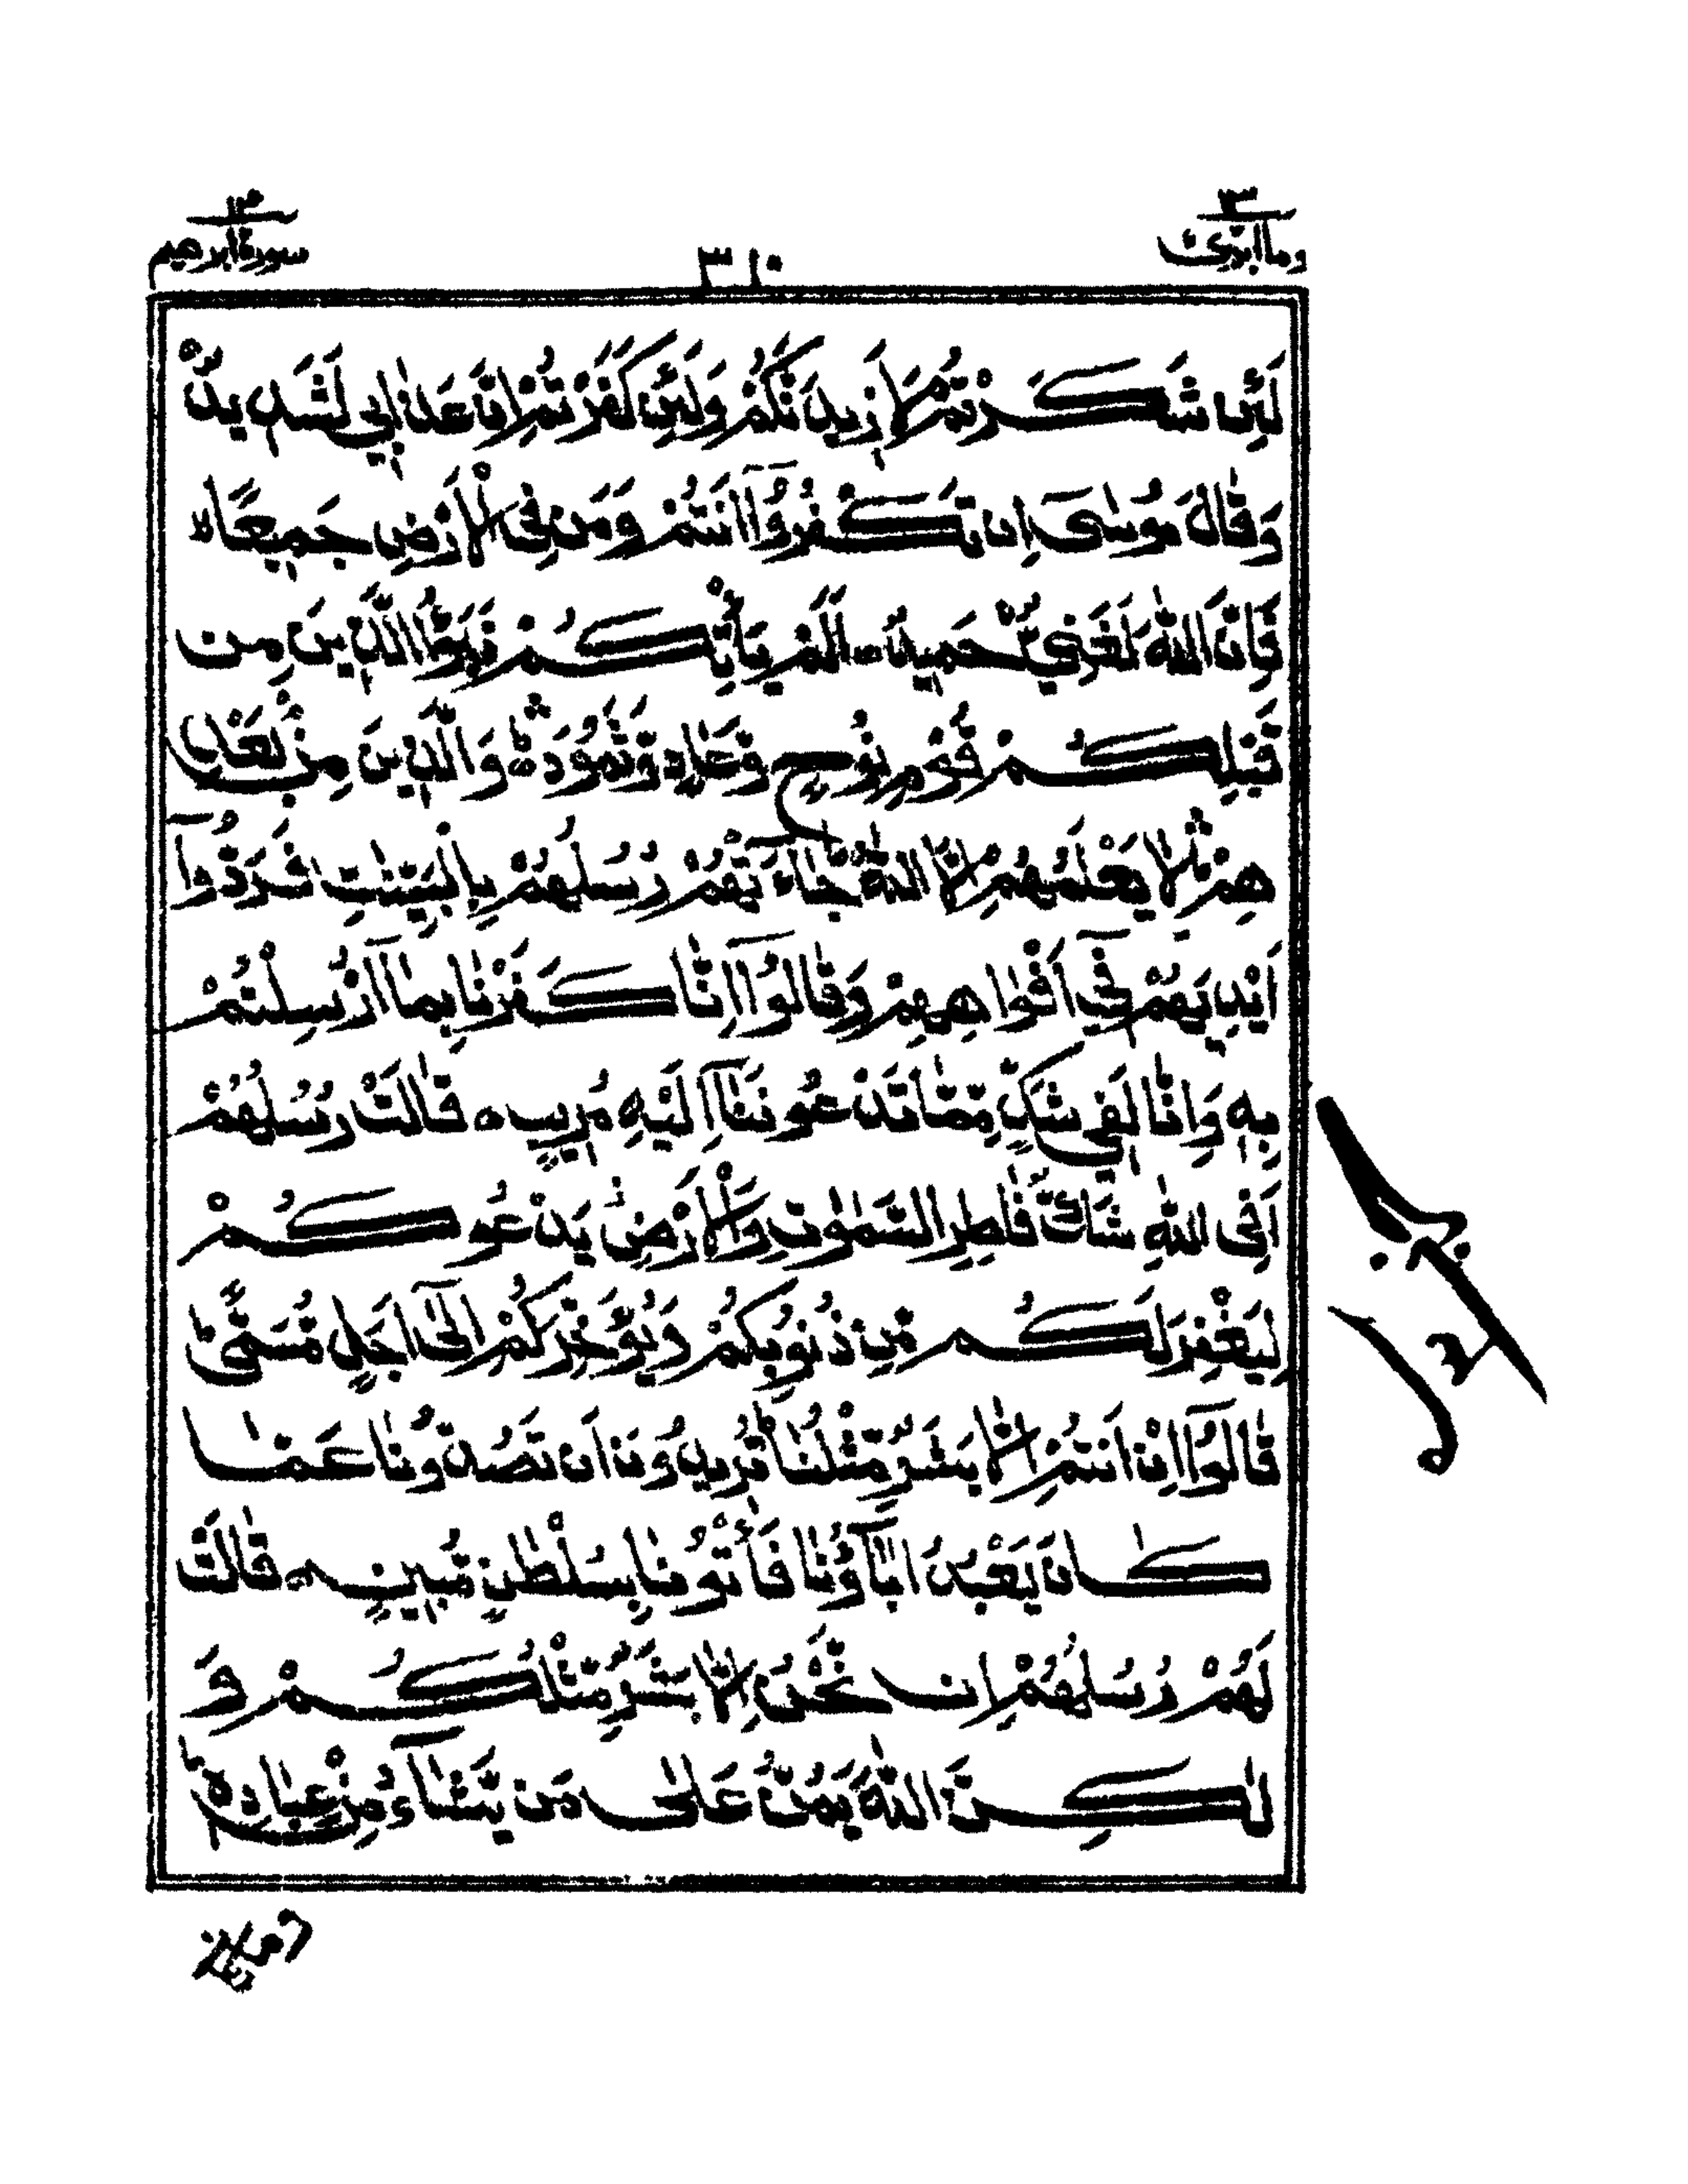 ١٣
وما ابرئ
٣١٠
سورة ابرهيم
لَئِنْ شَكَرْتُمْ لَاَزِيْدَنَّكُمْ وَلَئِنْ كَفَرْتُمْ اِنَّ عَذَابِيْ لَشَدِيْدٌ
وَقَالَ مُوْسٰى اِنْ تَكْفُرُوْٓا اَنْتُمْ وَمَنْ فِى الْاَرْضِ جَمِيْعًا ۙ
فَاِنَّ اللّٰهَ لَغَنِيٌّ حَمِيْدٌ ۝ اَلَمْ يَاْتِكُمْ نَبَؤُا الَّذِيْنَ مِنْ
قَبْلِكُمْ قَوْمِ نُوْحٍ وَّعَادٍ وَّثَمُوْدَ ۛ وَالَّذِيْنَ مِنْۢ بَعْدِ
هِمْ ۛ لَا يَعْلَمُهُمْ اِلَّا اللّٰهُ ۗ جَآءَتْهُمْ رُسُلُهُمْ بِالْبَيِّنٰتِ فَرَدُّوْٓا
اَيْدِيَهُمْ فِيْٓ اَفْوَاهِهِمْ وَقَالُوْٓا اِنَّا كَفَرْنَا بِمَآ اُرْسِلْتُمْ
بِهٖ وَاِنَّا لَفِيْ شَكٍّ مِّمَّا تَدْعُوْنَنَآ اِلَيْهِ مُرِيْبٍ ۝ قَالَتْ رُسُلُهُمْ
اَفِى اللّٰهِ شَكٌّ فَاطِرِ السَّمٰوٰتِ وَالْاَرْضِ ۗ يَدْعُوْكُمْ
لِيَغْفِرَ لَكُمْ مِّنْ ذُنُوْبِكُمْ وَيُؤَخِّرَكُمْ اِلٰٓى اَجَلٍ مُّسَمًّى ۗ
قَالُوْٓا اِنْ اَنْتُمْ اِلَّا بَشَرٌ مِّثْلُنَا ۗ تُرِيْدُوْنَ اَنْ تَصُدُّوْنَا عَمَّا
كَانَ يَعْبُدُ اٰبَآؤُنَا فَاْتُوْنَا بِسُلْطٰنٍ مُّبِيْنٍ ۝ قَالَتْ
لَهُمْ رُسُلُهُمْ اِنْ نَّحْنُ اِلَّا بَشَرٌ مِّثْلُكُمْ وَ
لٰكِنَّ اللّٰهَ يَمُنُّ عَلٰى مَنْ يَّشَآءُ مِنْ عِبَادِهٖ ۗ